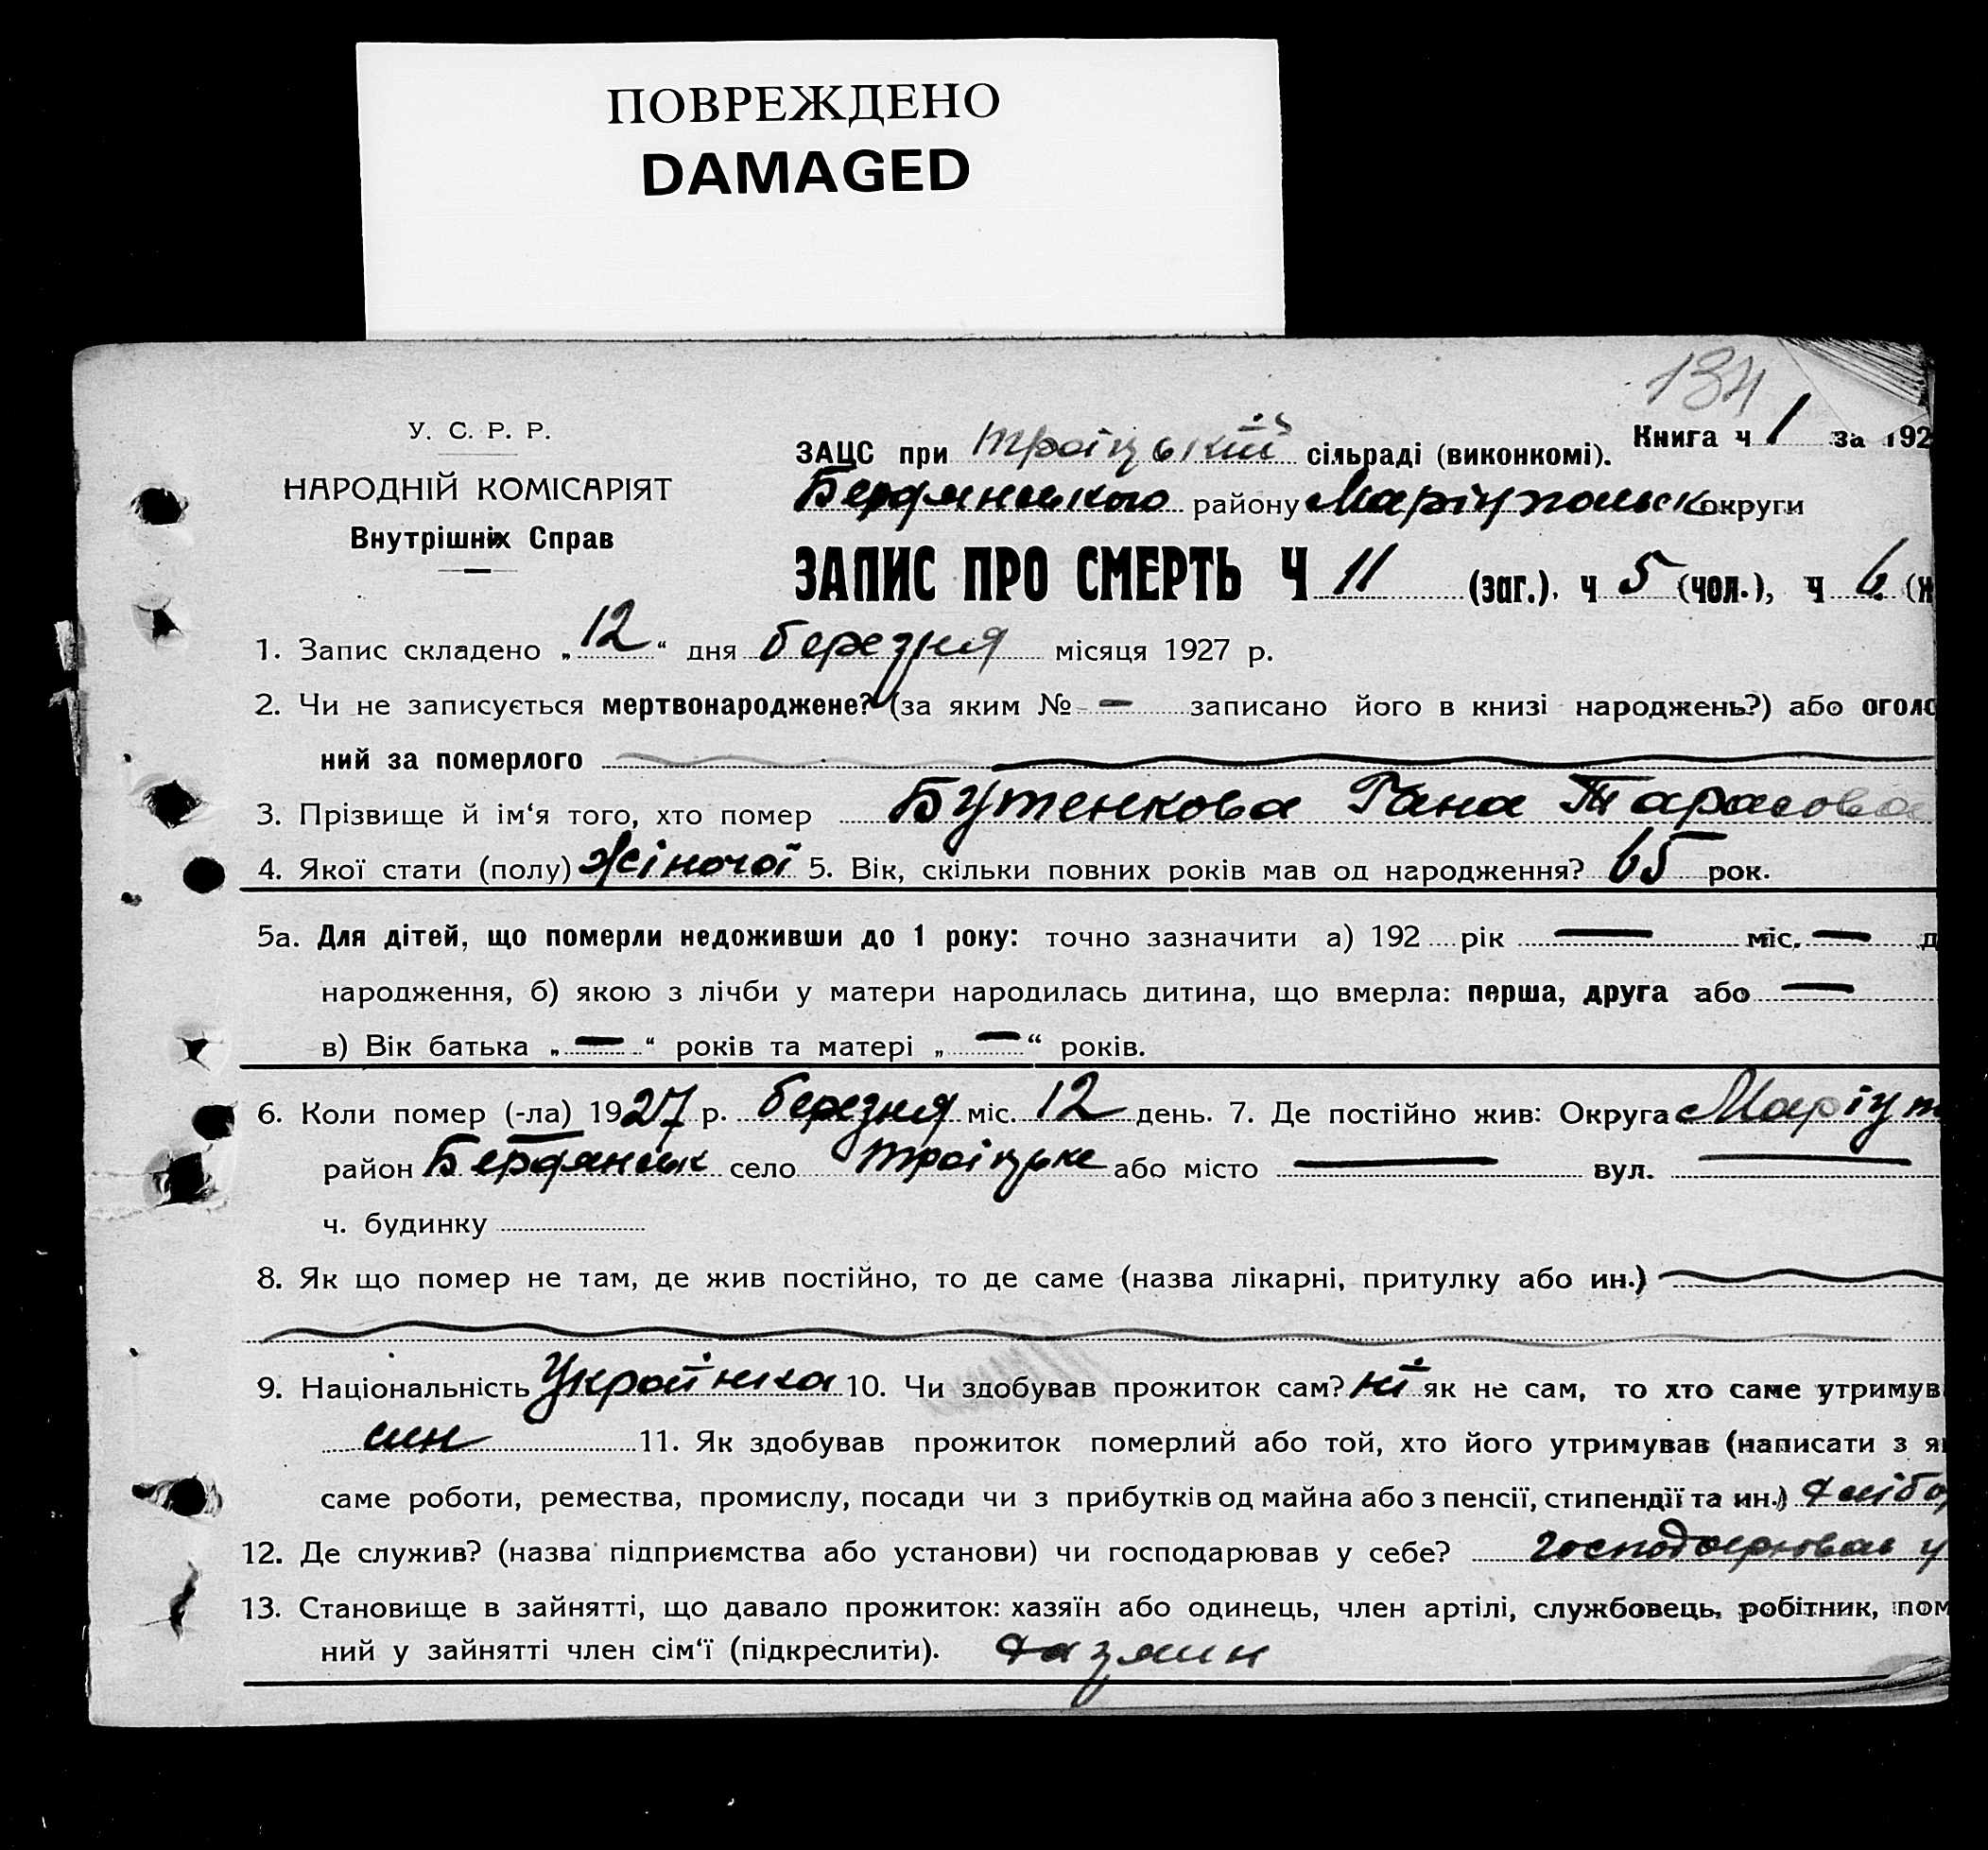 ПОВРЕЖДЕНО
DAMAGED
134
У. С. Р. Р.
НАРОДНІЙ КОМІСАРІЯТ
Внутрішніх Справ
Книга ч 1 за 192
ЗАЦС при Троіцькій сільраді (виконкомі).
Бердянського району Маріупольськ округи
ЗАПИС ПРО СМЕРТЬ Ч 11 (заг.). ч 5 (чол.), ч 6 (ж
1. Запис складено „12“ дня березня місяця 1927 р.
2. Чи не записується мертвонароджене? (за яким № — записано його в книзі народжень?) або оголо
ний за померлого
3. Прізвище й ім‘я того, хто помер Бутенкова Гана Тарасова
4. Якої стати (полу) жіночої 5. Вік, скільки повних років мав од народження? 65 рок.
5а. Для дітей, що померли недоживши до 1 року: точно зазначити а) 192 рік — міс. — д
народження, б) якою з лічби у матери народилась дитина, що вмерла: перша, друга або —
в) Вік батька „—“ років та матері „—“ років.
6. Коли помер (-ла) 1927 р. березня міс. 12 день. 7. Де постійно жив: Округа Маріуп
район Бердянськ село Троіцьке або місто — вул. —
ч. будинку
8. Як що помер не там, де жив постійно, то де саме (назва лікарні, притулку або ин.)
9. Національність Украйнка 10. Чи здобував прожиток сам? ні як не сам, то хто саме утримув
син 11. Як здобував прожиток померлий або той, хто його утримував (написати з як
саме роботи, ремества, промислу, посади чи з прибутків од майна або з пенсії, стипендії та ин.) хлібо
12. Де служив? (назва підприємства або установи) чи господарював у себе? господарював у
13. Становище в зайнятті, що давало прожиток: хазяїн або одинець, член артілі, службовець, робітник, пом
ний у зайнятті член сім‘ї (підкреслити). хазяин